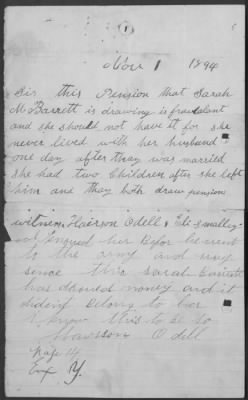 1
Nov 1 1894
Sir this Pension that Sarah
M Barrett is drawing is fraudalant
and she should not have it for she
never lived with her husband
one day after thay was married
she had two Children after she left
him and thay both draw pension
witness Odell
her Befor he went
to the army and
sence this Sarah Barrett
has money and it
Belong to her
I know this to be So
Odell
Page 14
Ex Y.